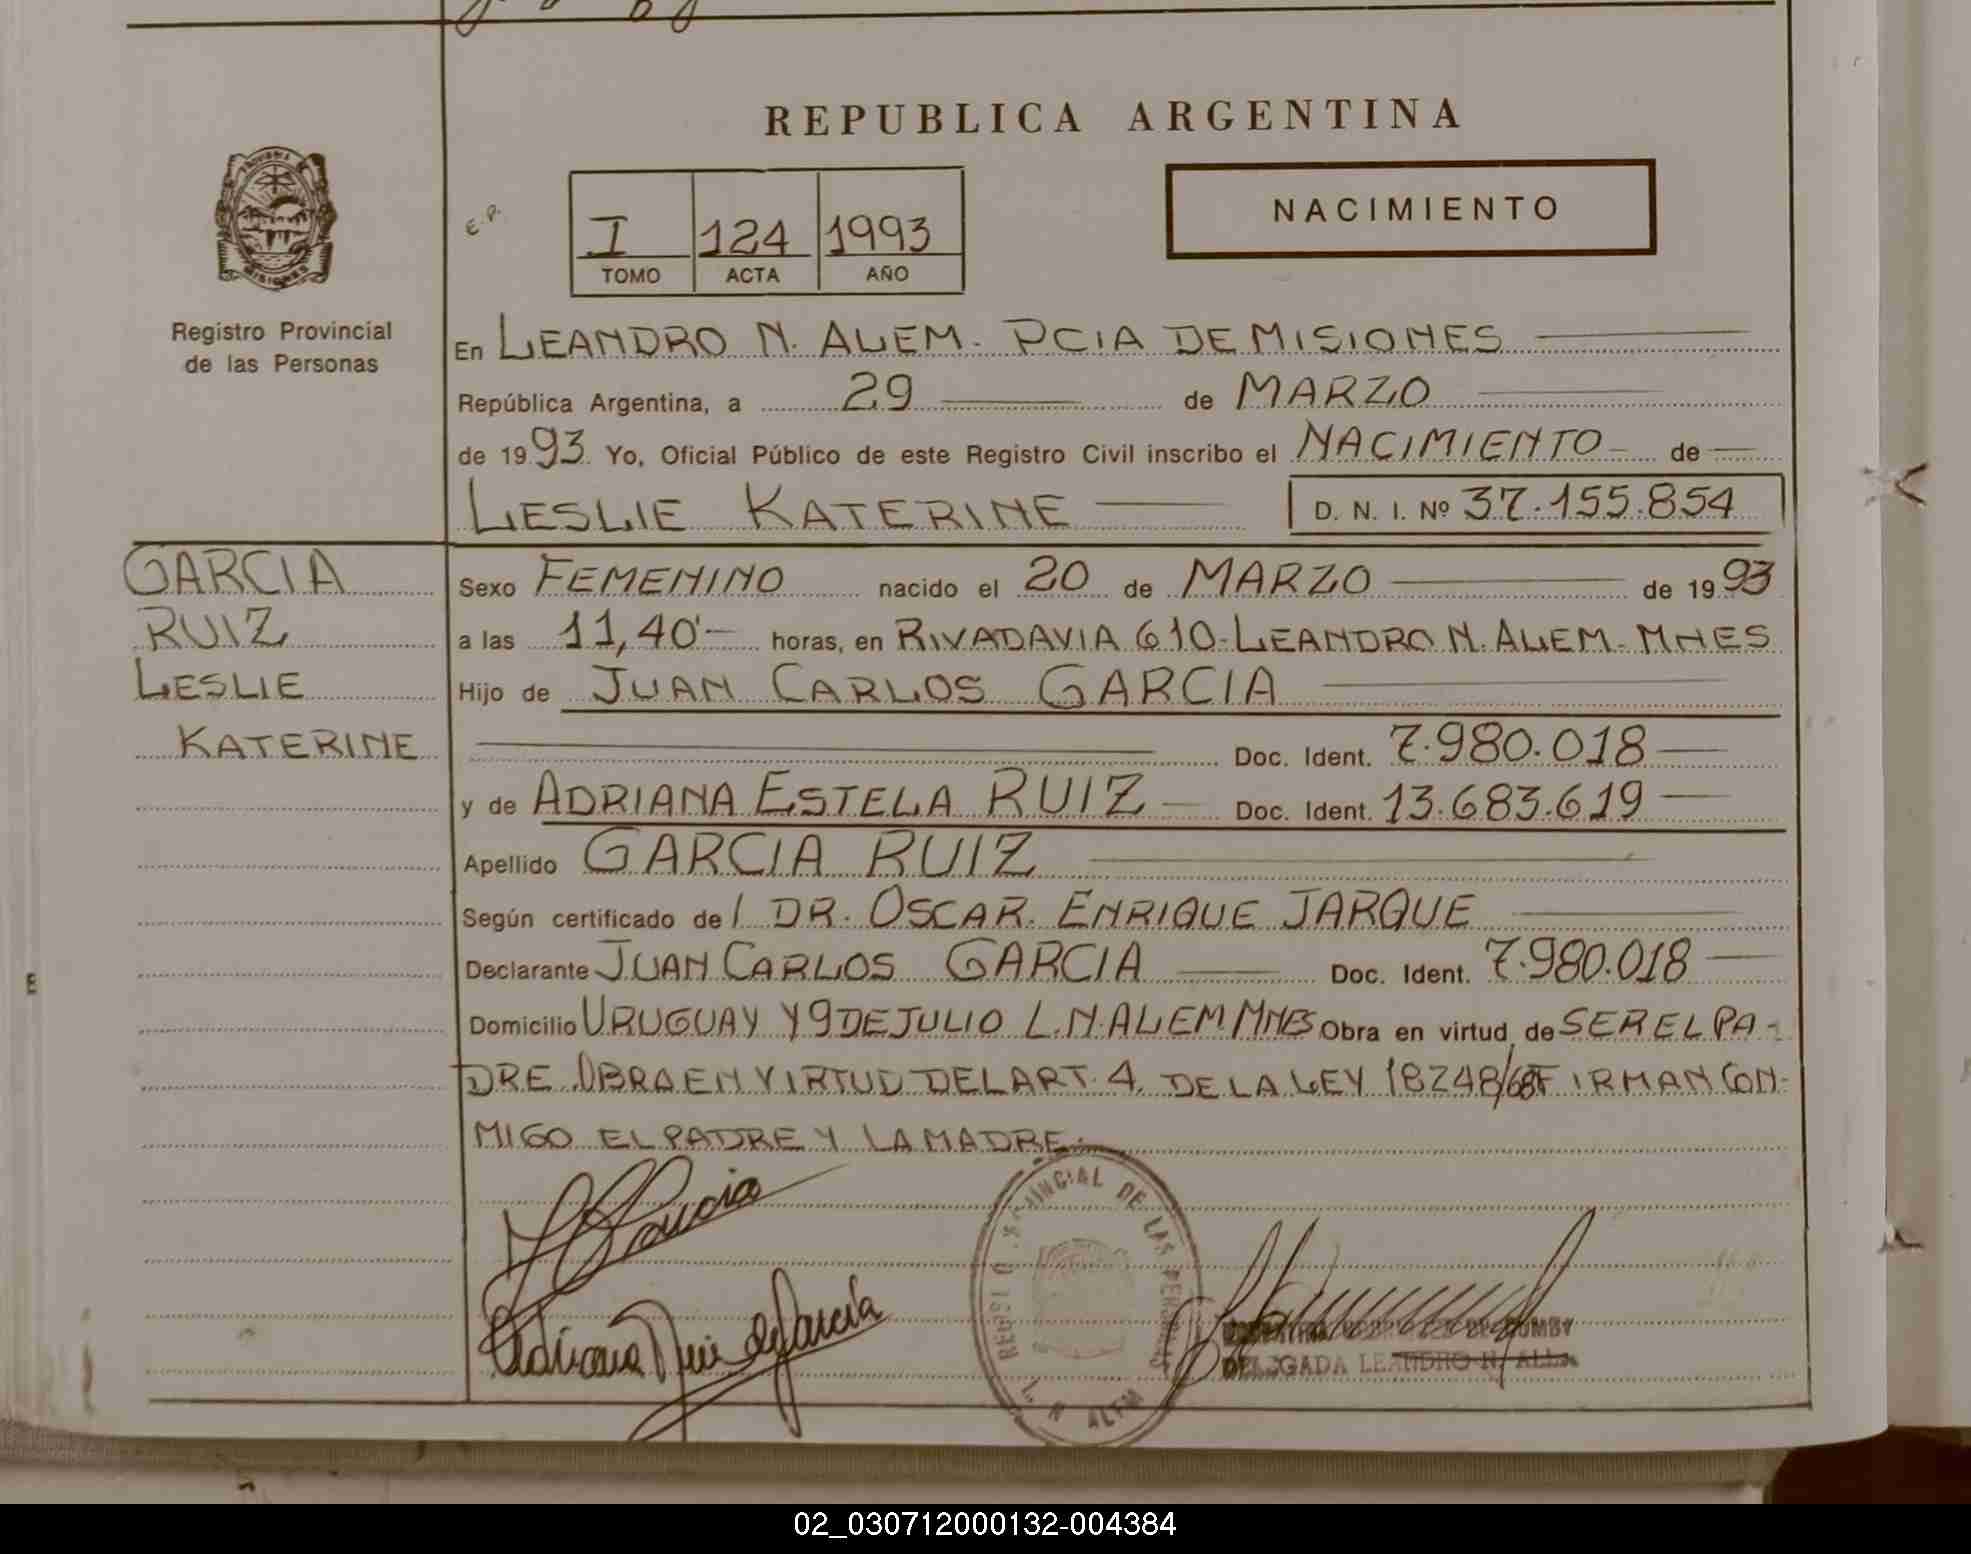 REPUBLICA ARGENTINA
NACIMIENTO
E.P.
I 124 1993
TOMO ACTA AÑO
PROVINCIA
MISIONES
Registro Provincial
de las Personas
En LEANDRO N. ALEM. PCIA DE MISIONES
República Argentina, a 29 de MARZO
de 1993. Yo, Oficial Público de este Registro Civil inscribo el NACIMIENTO de
LESLIE KATERINE D. N. I. Nº 37.155.854
GARCIA
RUIZ
LESLIE
KATERINE
Sexo FEMENINO nacido el 20 de MARZO de 1993
a las 11,40'- horas, en RIVADAVIA 610-LEANDRO N. ALEM. MNES
Hijo de JUAN CARLOS GARCIA
Doc. Ident. 7.980.018
y de ADRIANA ESTELA RUIZ Doc. Ident. 13.683.619
Apellido GARCIA RUIZ
Según certificado de l DR. OSCAR ENRIQUE JARQUE
Declarante JUAN CARLOS GARCIA Doc. Ident. 7.980.018
Domicilio URUGUAY Y 9 DE JULIO L.N.ALEM.MNES Obra en virtud de SER EL PA-
DRE OBRA EN VIRTUD DEL ART. 4. DE LA LEY 18248/68 FIRMAN CON-
MIGO EL PADRE Y LA MADRE.
Garcia
Adriana Ruiz de Garcia
REGISTRO PROVINCIAL DE LAS PERSONAS
L. N. ALEM
DELEGADA LEANDRO N. ALEM
02_030712000132-004384